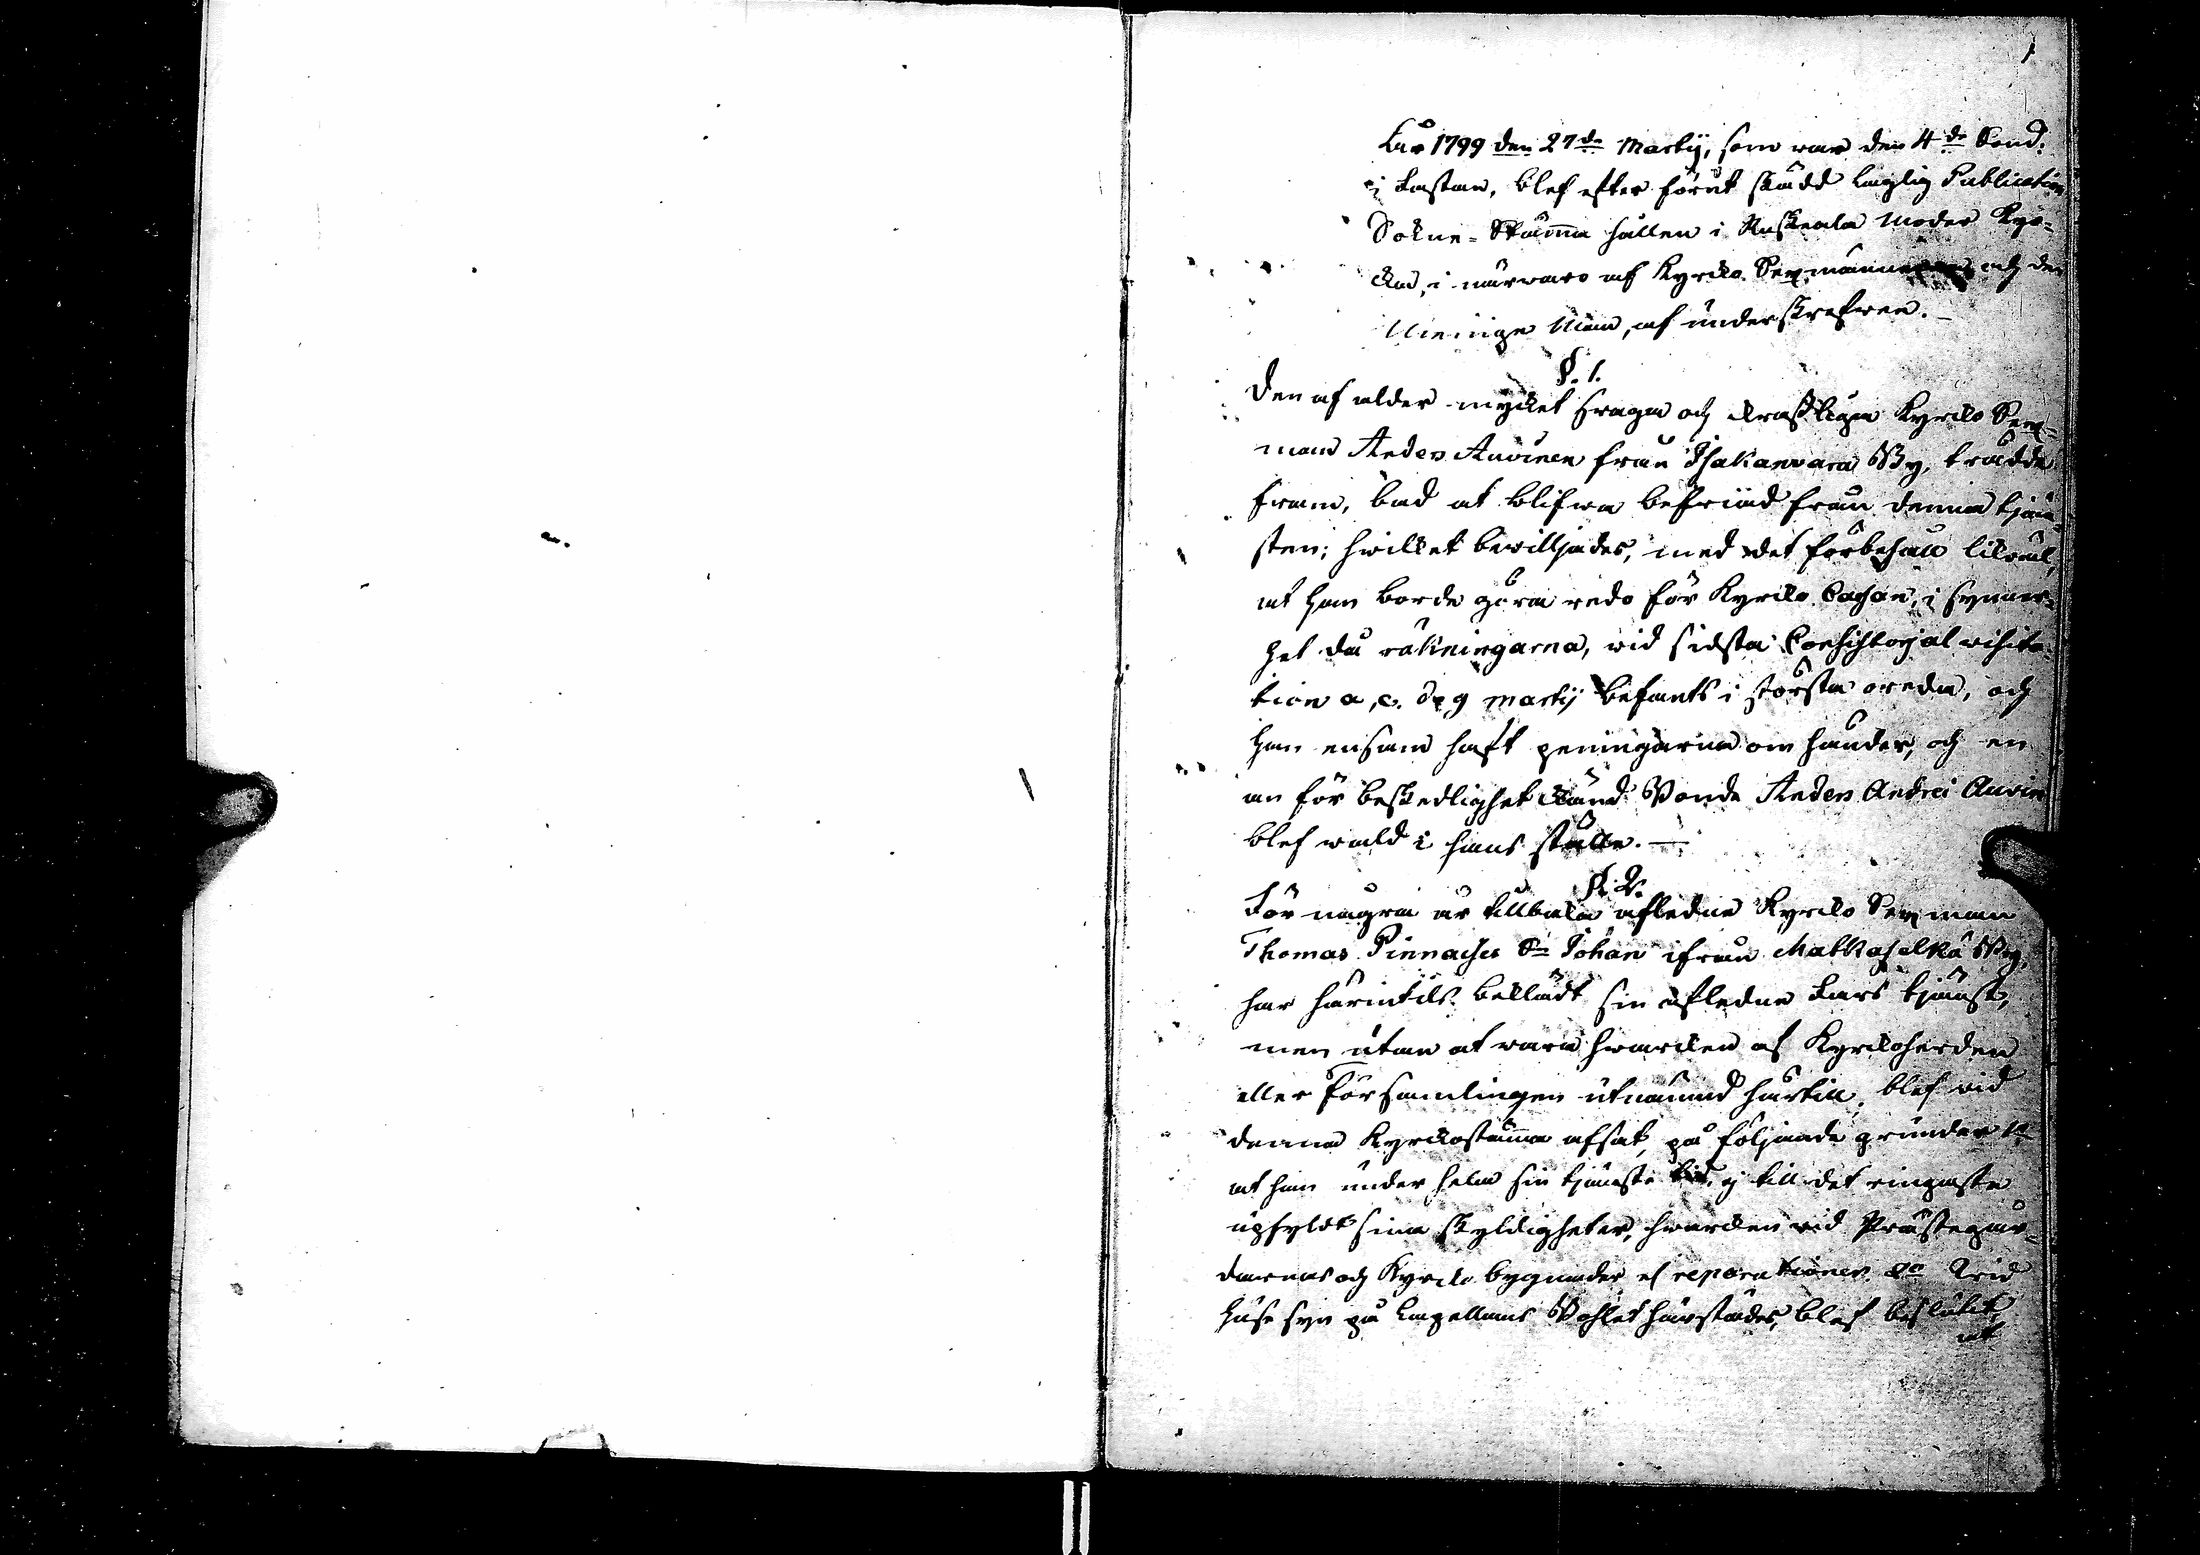 1
År 1799 den 27de Martij, som war den 4de Sönd:
i Fastan, blef efter förut skedd laglig Publication
Sokne-Stämma hållen i Ruskeala Moder Kyr-
cka, i närwaro af Kyrcko Sexmännerna och den
Menige Man, af underskrefwen.
§. 1.
Den af ålder mycket swaga och bräckliga Kyrcko Sex-
man Anders Auvinen från Ihakanvara By, trädde
fram, bad at blifwa befriad från denna tjän-
sten; hwilcket bewilljades, med det förbehåll likwäl,
at han borde göra redo för Kyrcko Cassan, i synner-
het då räkningarna, wid sidsta Consistorial visita-
tion a.c. d. 9 martij befants i största oreda, och
han ensam haft peningarna om händer, och en
an för beskedlighet känd Bonde Anders Andrei Auvin
blef wald i hans ställe. —
§. 2.
För några år tillbaka afledne Kyrcko Sexman
Thomas Pinnaises Sn Johan ifrån Matkaselkä By,
har härintils beklädt sin afledne Fars tjänst,
men utan at wara hwarcken af Kyrckoherden
eller Församlingen utnämnd härtill, blef wid
denna Kyrckostämma afsat, på följande grunder 1o
at han under hela sin tjänste tid, ej till det ringaste
upfyldt sina skyldigheter, hwarcken wid Prästegår-
darnas och Kyrcko bygnader el reparationer. 2o Wid
Huse syn på Capellans Bohlet härstädes, blef beslutit,
at